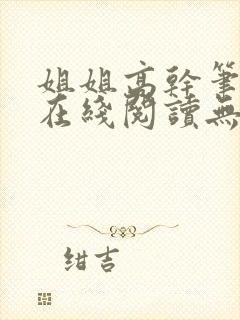 姐姐高幹筆
在綫閱讀無
绀吉